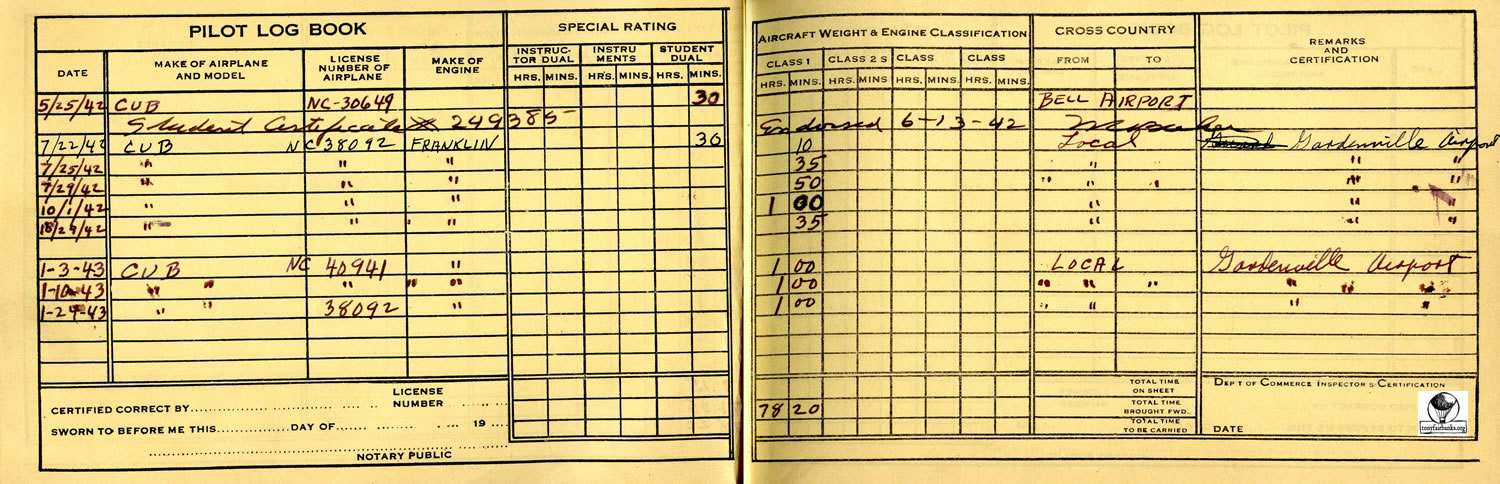 PILOT LOG BOOK SPECIAL RATING AIRCRAFT WEIGHT & ENGINE CLASSIFICATION CROSS COUNTRY REMARKS AND CERTIFICATION
DATE MAKE OF AIRPLANE AND MODEL LICENSE NUMBER OF AIRPLANE MAKE OF ENGINE INSTRUC-TOR DUAL INSTRU MENTS STUDENT DUAL CLASS 1 CLASS 2 S CLASS CLASS FROM TO
HRS. MINS. HRS. MINS. HRS. MINS. HRS. MINS. HRS. MINS. HRS. MINS. HRS. MINS.
5/25/42 CUB NC-30649 30 BELL AIRPORT
Student Certificate 249385 Endorsed 6-13-42
7/22/42 CUB NC 38092 FRANKLIN 30 10 Local Gardenville Airport
7/25/42 " " " 35 " " "
7/29/42 " " " 50 " " " " "
10/1/42 " " " 1 00 " " "
" " " " 35 " " "
1-3-43 CUB NC 40941 " 1 00 LOCAL Gardenville Airport
1-10-43 " " " " " 1 00 " " " " " "
1-24-43 " " 38092 " 1 00 " " " "
CERTIFIED CORRECT BY LICENSE NUMBER
SWORN TO BEFORE ME THIS DAY OF 19
NOTARY PUBLIC
TOTAL TIME ON SHEET
78 20 TOTAL TIME BROUGHT FWD.
TOTAL TIME TO BE CARRIED
DEPT OF COMMERCE INSPECTOR'S CERTIFICATION
DATE
tonyfairbanks.org